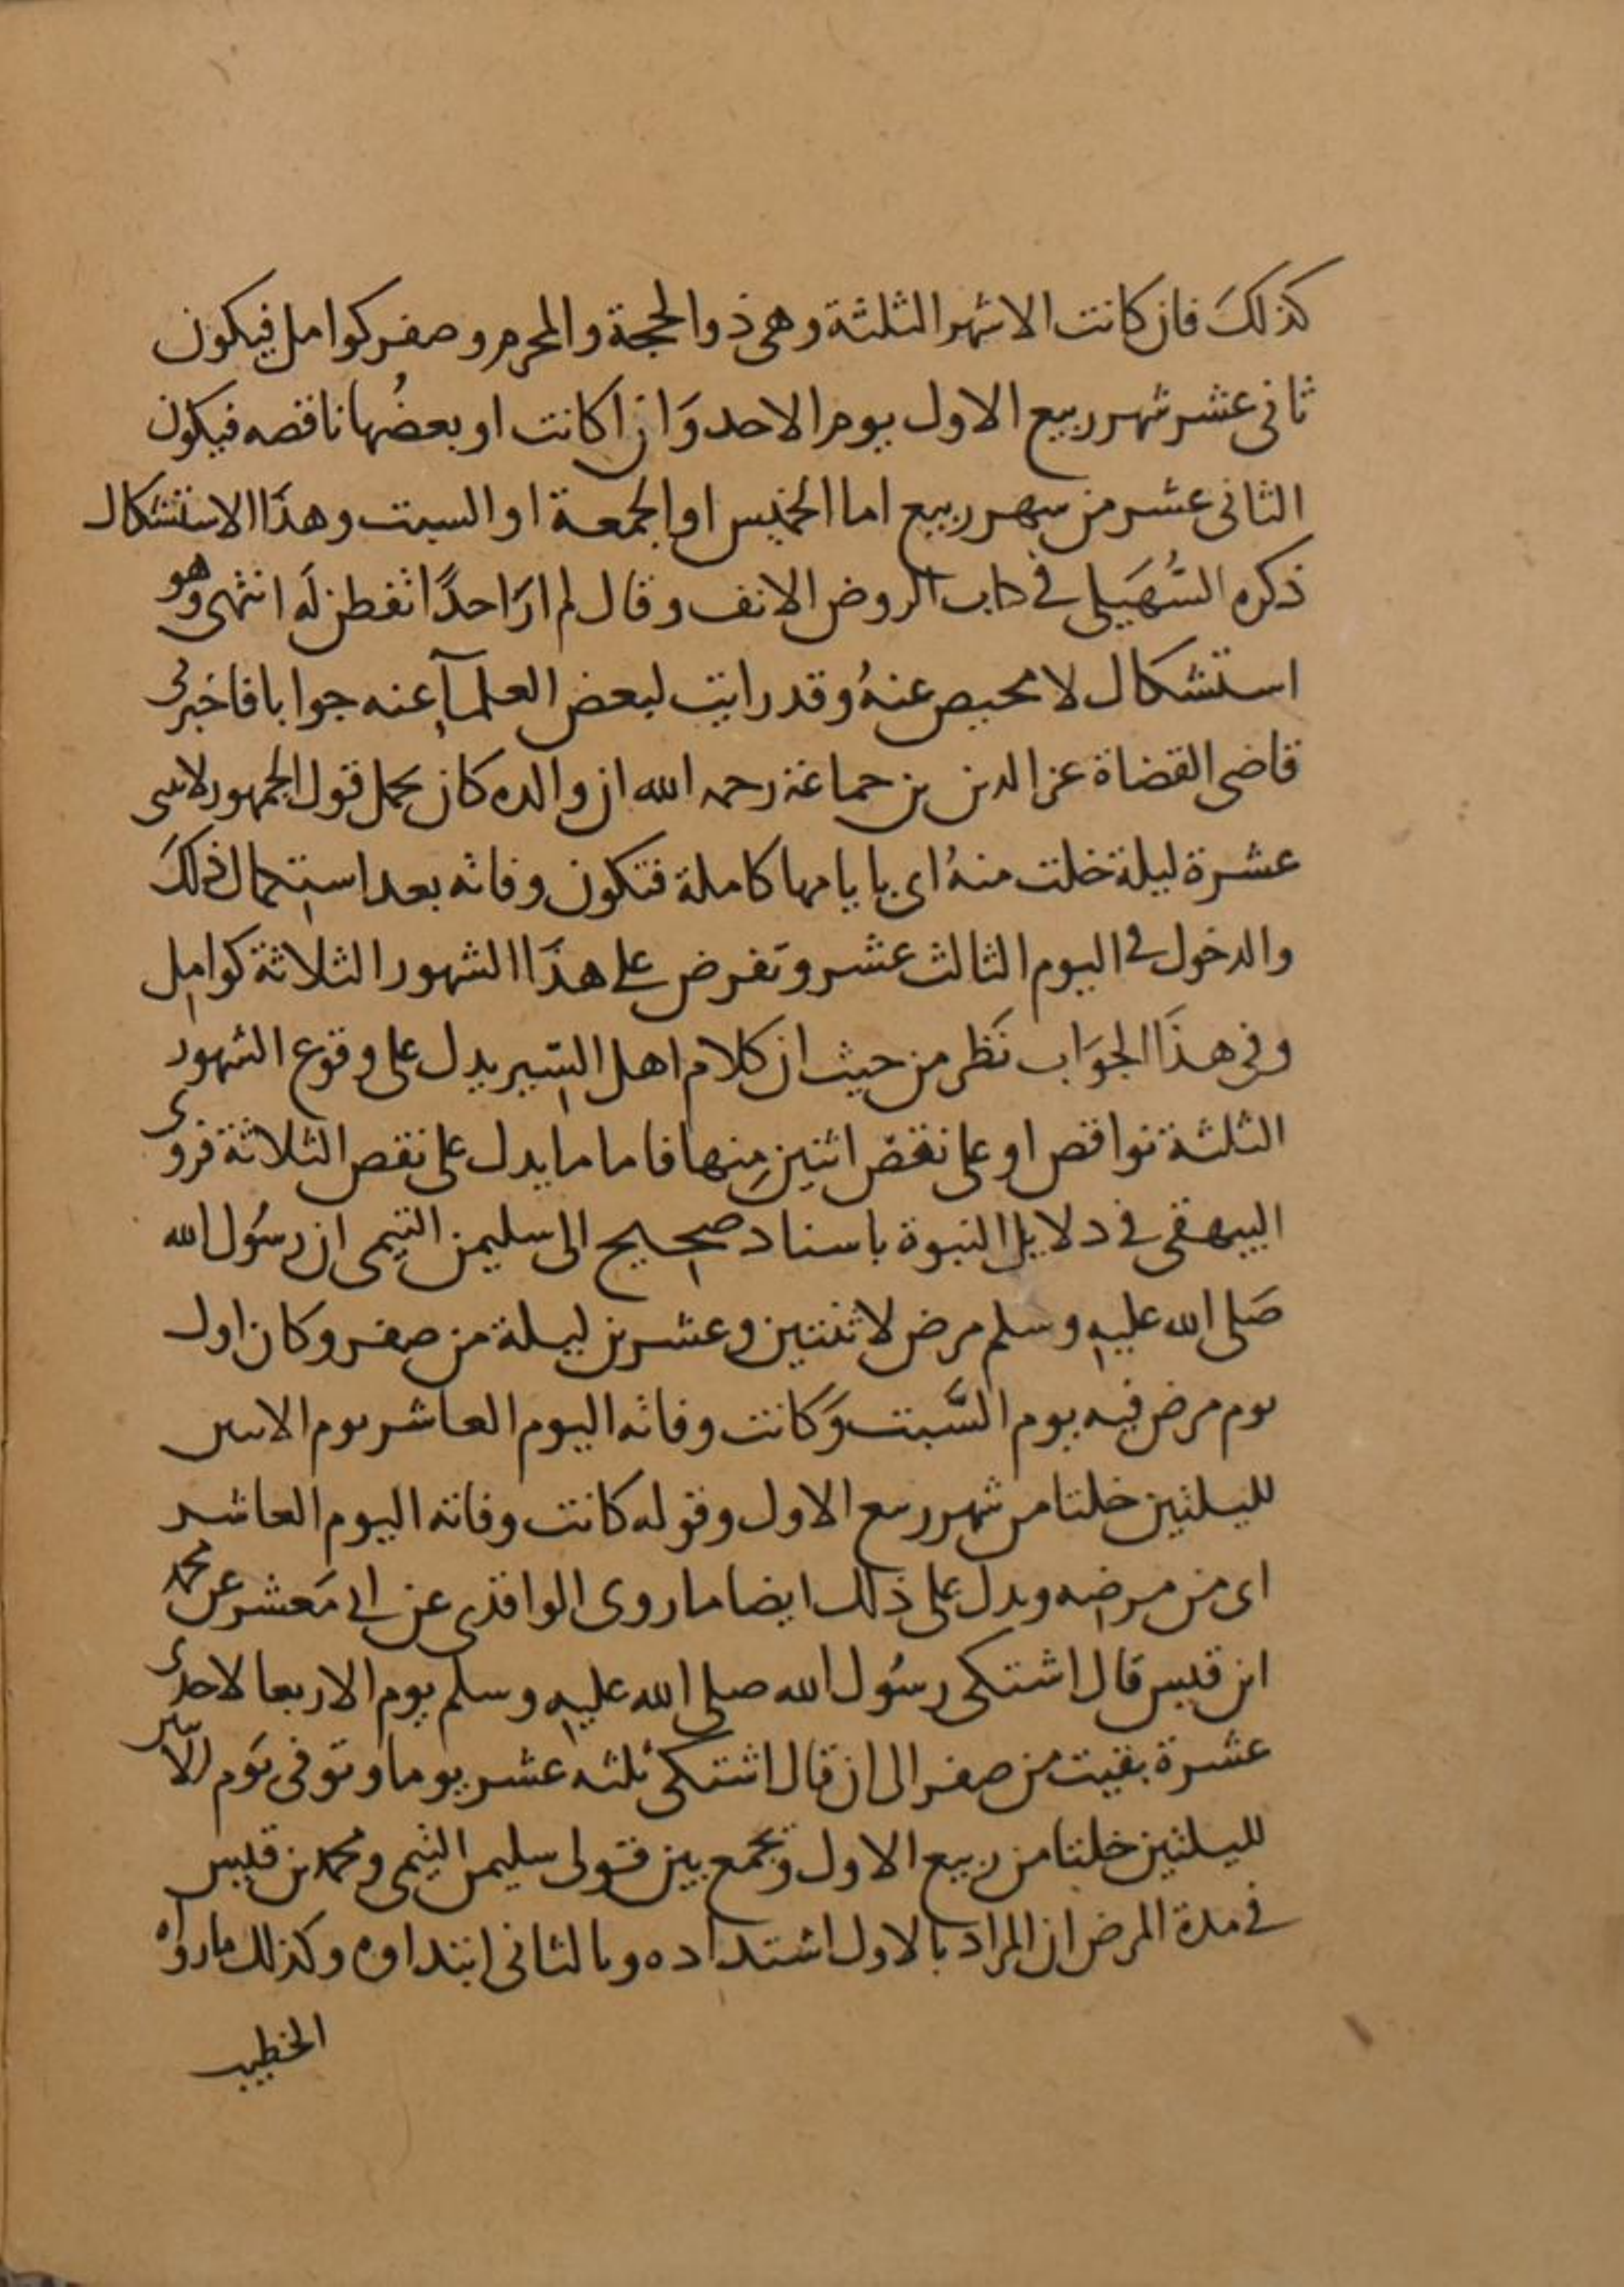 كذلكَ فان كانت الاشهر الثلثة وهى ذو الحجة والمحرم وصفر كوامل فيكون
ثانى عشر شهر ربيع الاول يوم الاحد وَان كانت او بعضُها ناقصه فيكون
الثانى عشر من سهر ربيع اما الخميس او الجمعة او السبت وهذَا الاستشكال
ذكره السُّهَيلى فى كتاب الروض الانف وقال لم ارَ احدًا تفطن لَه انتهى وهو
استشكال لا محيص عنهُ وقد رايت لبعض العلمآء عنه جوابا فاخبرنى
قاضى القضاة عز الدين بن جماعة رحمه الله ان والده كان يحمل قول الجمهور لاثنى
عشرة ليلة خلت منهُ اى بايامها كاملة فتكون وفاته بعد استكمال ذلكَ
والدخول فى اليوم الثالث عشر وتفرض على هذَا الشهور الثلاثة كوامل
وفى هذَا الجوَاب نَظر من حيث ان كلام اهل السّير يدل على وقوع الشهور
الثلثة نواقص او على نقص اثنين مِنها فاما ما يدل على نقص الثلاثة فروى
البيهقى فى دلايل النبوة باسناد صحيح الى سليمن التيمى ان رسُول الله
صَلى الله عليه وسلم مرض لاثنتين وعشرين ليلة من صفر وكان اول
يوم مرض فيه يوم السَّبت وَكانت وفاته اليوم العاشر يوم الاثنين
لليلتين خلتا من شهر ربيع الاول وقوله كانت وفاته اليوم العاشر
اى من مرضه ويدل على ذلك ايضا ما روى الواقدى عن ابى مَعشر عن محمد
ابن قيس قال اشتكى رسُول الله صلى الله عليه وسلم يوم الاربعا لاحدى
عشرة بقيت من صفر الى ان قال اشتكى ثلثه عشر يوما وتوفى يَوم الاثنين
لليلتين خلتا من ربيع الاول ويجمع بين قولى سليمن التيمى ومحمد بن قيس
فى مدة المرض ان المراد بالاول اشتداده وبالثانى ابتداوه وكذلك ما رواه
الخطيب